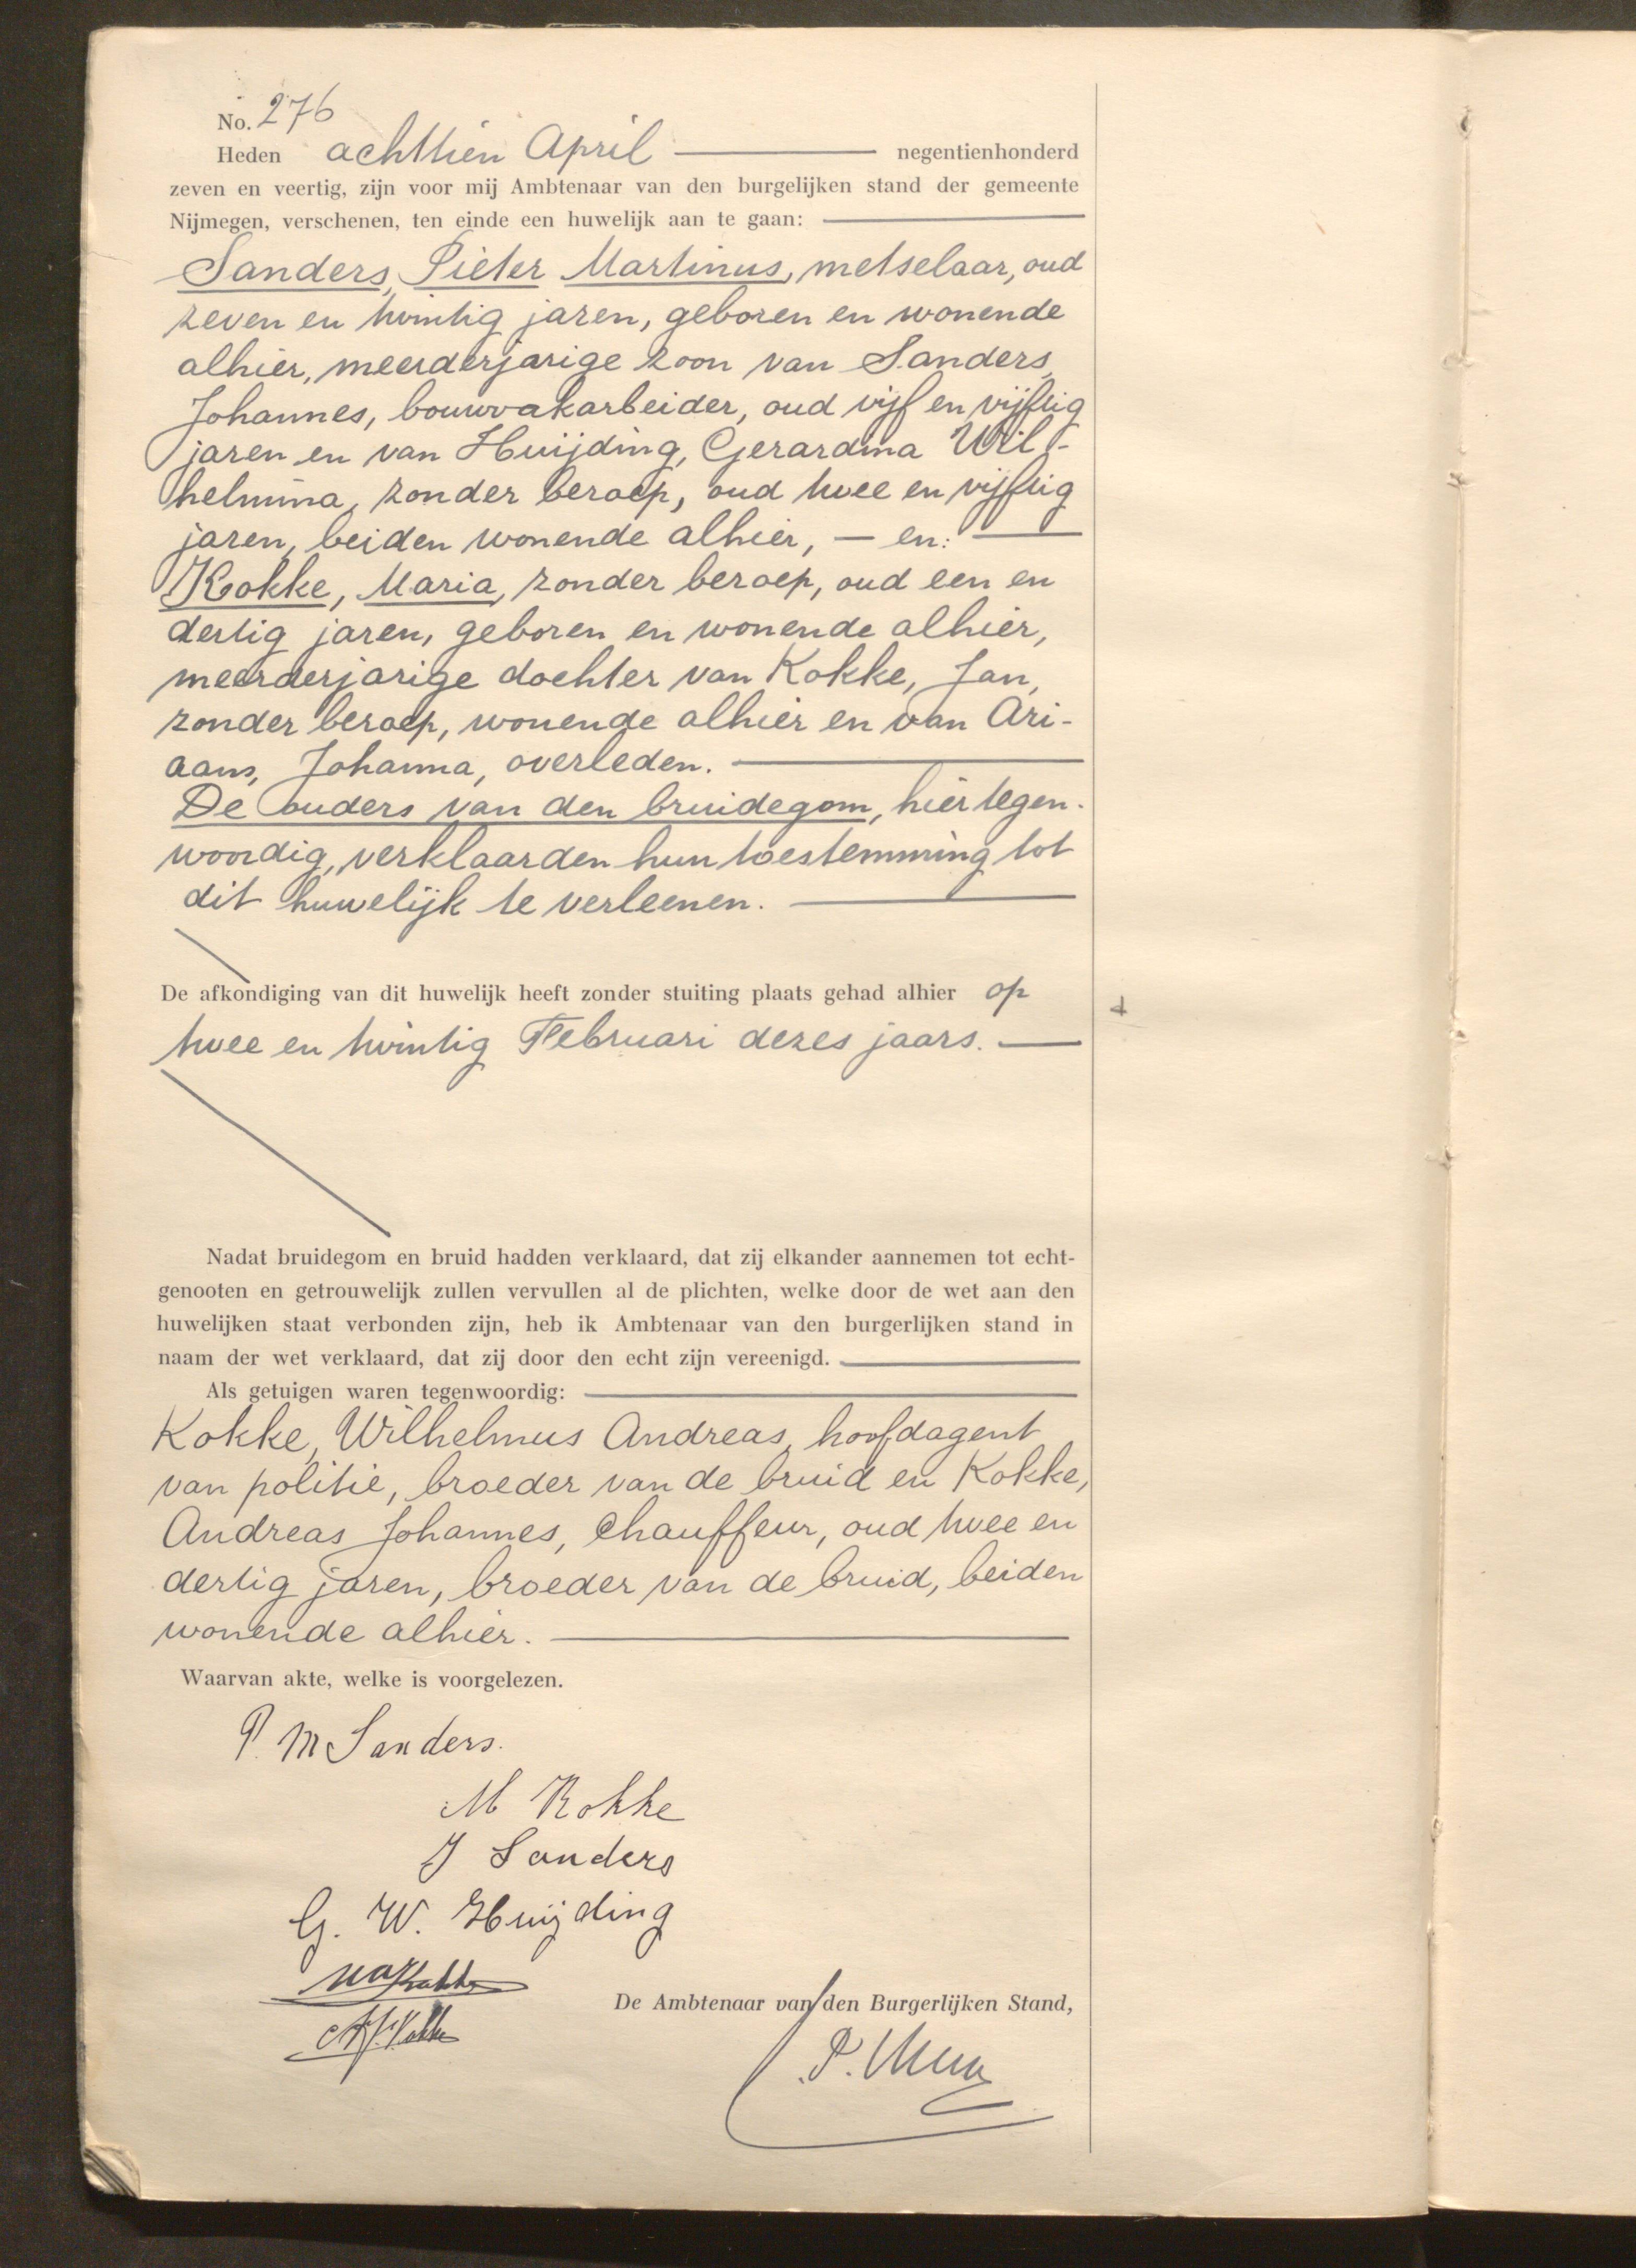 No. 276
Heden achttien April negentienhonderd
zeven en veertig, zijn voor mij Ambtenaar van den burgelijken stand der gemeente
Nijmegen, verschenen, ten einde een huwelijk aan te gaan:
Sanders, Pieter Martinus, metselaar, oud
zeven en twintig jaren, geboren en wonende
alhier, meerderjarige zoon van Sanders,
Johannes, bouwvakarbeider, oud vijf en vijftig
jaren en van Huijding, Gerardina Wil-
helmina, zonder beroep, oud twee en vijftig
jaren, beiden wonende alhier, — en:
Kokke, Maria, zonder beroep, oud een en
dertig jaren, geboren en wonende alhier,
meerderjarige dochter van Kokke, Jan,
zonder beroep, wonende alhier en van Ari-
aans, Johanna, overleden.
De ouders van den bruidegom, hier tegen-
woordig, verklaarden hun toestemming tot
dit huwelijk te verleenen.
De afkondiging van dit huwelijk heeft zonder stuiting plaats gehad alhier op
twee en twintig Februari dezes jaars.
Nadat bruidegom en bruid hadden verklaard, dat zij elkander aannemen tot echt-
genooten en getrouwelijk zullen vervullen al de plichten, welke door de wet aan den
huwelijken staat verbonden zijn, heb ik Ambtenaar van den burgerlijken stand in
naam der wet verklaard, dat zij door den echt zijn vereenigd.
Als getuigen waren tegenwoordig:
Kokke, Wilhelmus Andreas, hoofdagent
van politie, broeder van de bruid en Kokke,
Andreas Johannes, chauffeur, oud twee en
dertig jaren, broeder van de bruid, beiden
wonende alhier.
Waarvan akte, welke is voorgelezen.
P. M Sanders.
M Kokke
J Sanders
G. W. Huijding
WA Kokke
A.J. Kokke
De Ambtenaar van den Burgerlijken Stand,